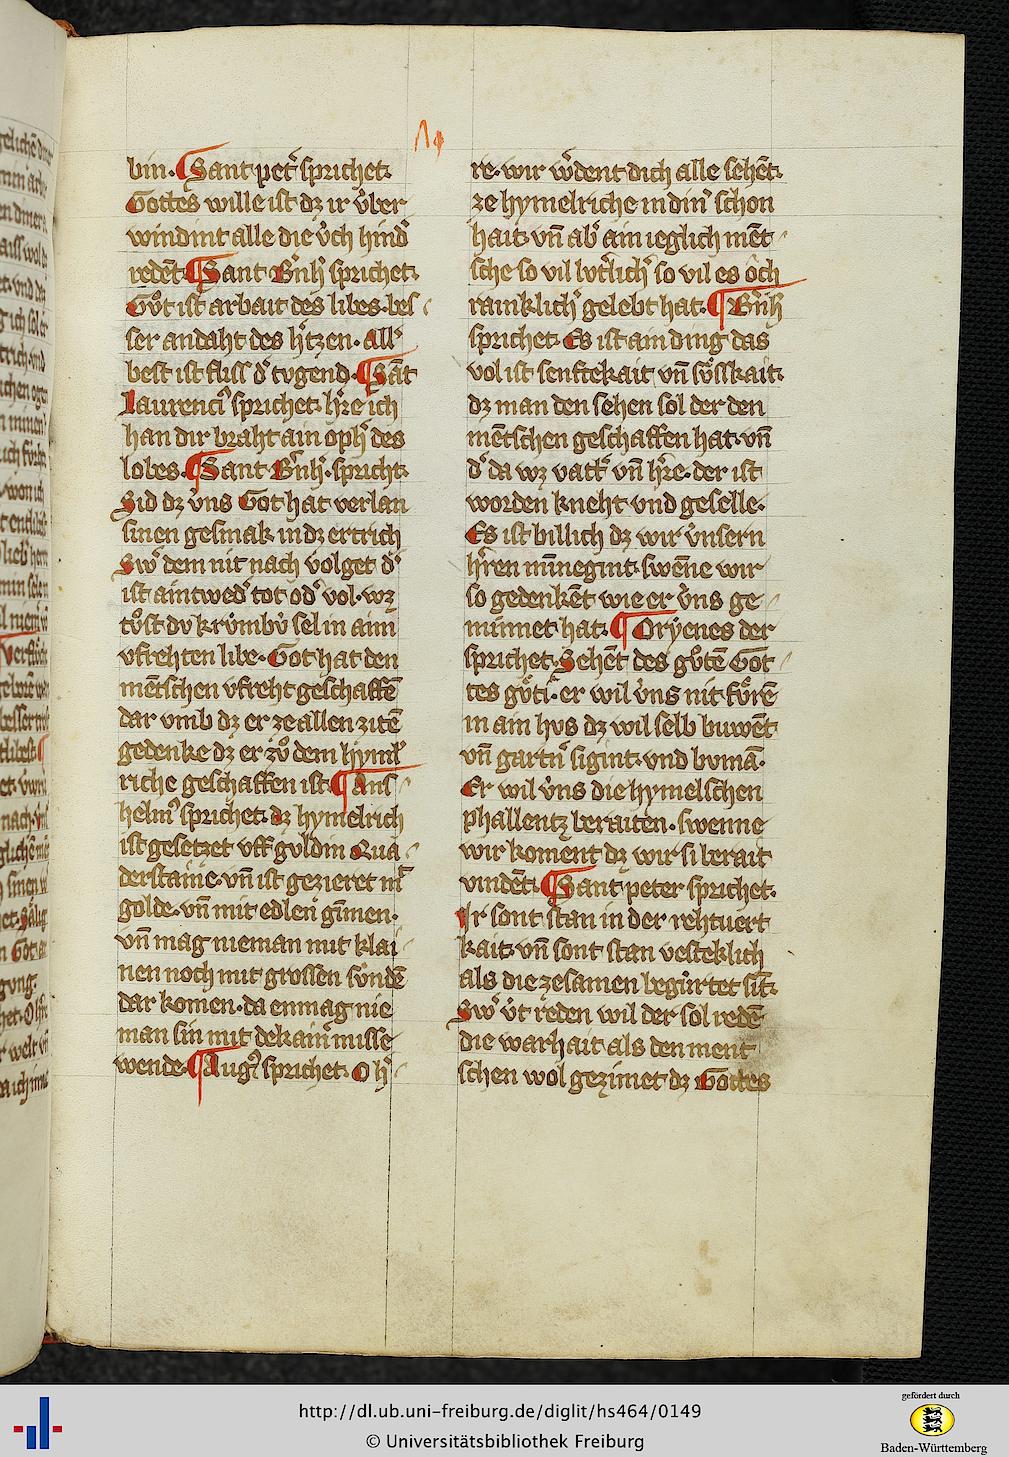 bin. Sant pet͛ sprichet.
Gottes wille ist dz ir v̍ber
windint alle die v̍ch hind͛
redēt. Sant B͛nh͛ sprichet.
Gůt ist arbait des libes. bes
ser andaht des h͛tzen. All͛
best ist fliss d͛ tvgend. Sāt
Laurenci͛ sprichet. h͛re ich
han dir braht ain oph͛ des
lobes. Sant B͛nh͛. spricht.
Sid dz v̍ns Got hat verlan
sinen gesmak in dz ertrich
Sw͛ dem nit nach volget d͛
ist aintwed͛ tot od͛ vol. wz
tůst dv krv̍mbv̍ sel in aim
vfrehten libe. Got hat den
mētschen vfreht geschaffē
dar vmb dz er ze allen zitē
gedenke dz er zů dem hym͛l
riche geschaffen ist. Ans
helm͛ sprichet. dz hymelrich
ist gesetzet vff gvldin Qua
derstaine. vn̄ ist gezieret m͛
golde. vn̄ mit edlen gimen.
vn̄ mag nieman mit klai
nen noch mit grossen sv̍ndē
dar komen. da enmag nie
man sin mit dekain͛ misse
wende. Aug͛ sprichet. O h͛
re. wir w͛dent dich alle sehēt.
ze hymelriche in din͛ schon
hait. vn̄ ab͛ ain ieglich mēt
sche so vil lvt͛lich͛ so vil es och
rainklich͛ gelebt hat. B͛nh
sprichet. Es ist ain ding das
vol ist senftekait vn̄ sůsskait.
dz man den sehen sol der den
mētschen geschaffen hat. vn̄
d͛ da wz vatt͛ vn̄ h͛re. der ist
worden kneht vnd geselle.
Es ist billich dz wir v̍nsern
h͛ren minnegint. swēne wir
so gedenkēt wie er v̍ns ge
minnet hat. Oryenes der
sprichet. Sehēt des gůtē Got
tes gůti. er wil v̍ns nit fůrē
in ain hvs dz wil selb buwēt
vn̄ gartn͛ sigint. vnd bvmā.
Er wil v̍ns die hymelschen
phallentz beraiten. swenne
wir koment dz wir si berait
vindēt. Sant peter sprichet.
Ir sont stan in der rehtuert
kait. vn̄ sont stan vesteklich
als die zesamen begv̍rtet sīt.
Sw͛ v̍t reden wil der sol redē
die warhait als den ment
schen wol gezimet dz Gottes
http://dl.ub.uni-freiburg.de/diglit/hs464/0149
© Universitätsbibliothek Freiburg
gefördert durch
Baden-Württemberg